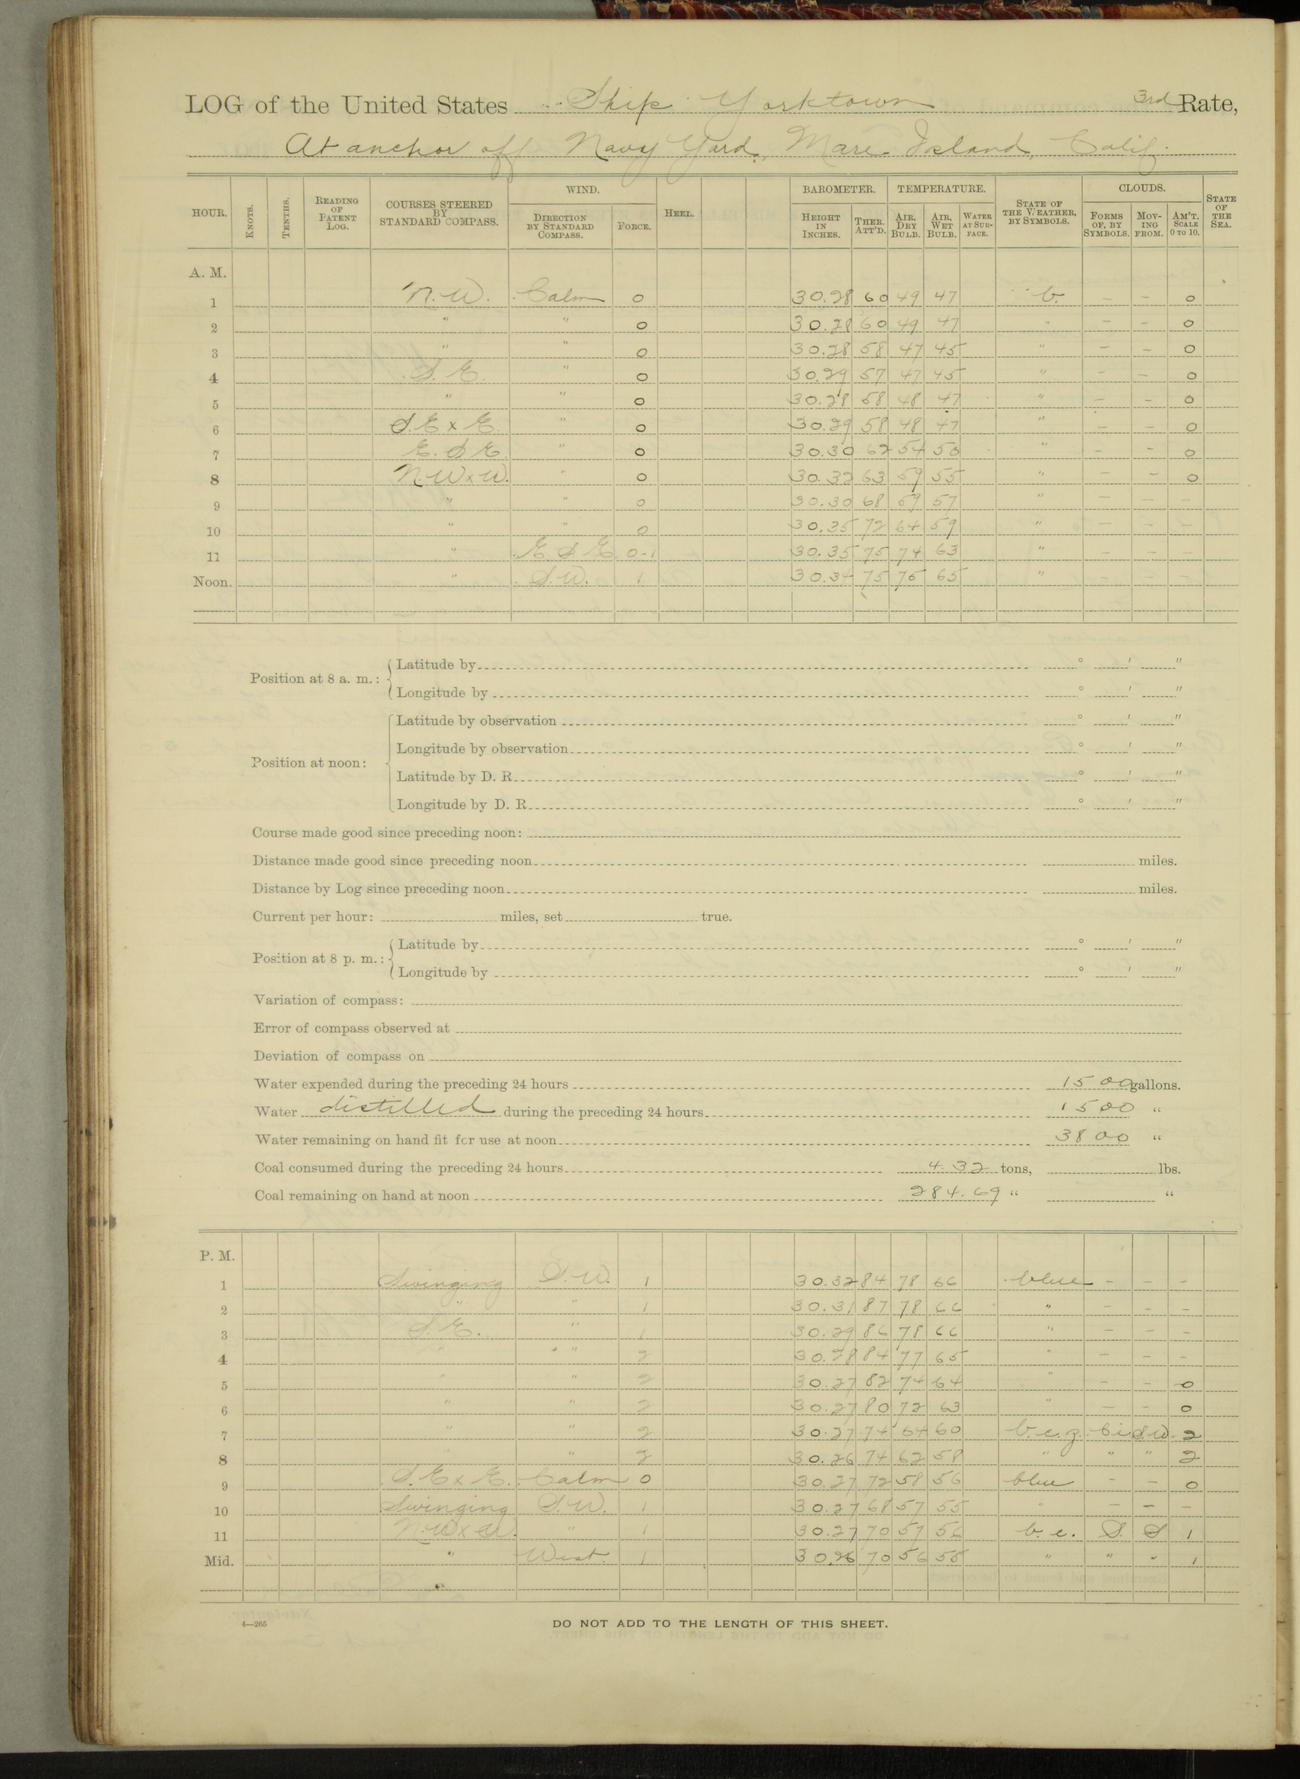 LOG of the United States Ship Yorktown 3rd Rate,
At anchor off Navy Yard, Mare Island, Calif.
HOUR. KNOTS. TENTHS. READING OF PATENT LOG. COURSES STEERED BY STANDARD COMPASS. WIND. DIRECTION BY STANDARD COMPASS. FORCE. HEEL. BAROMETER. HEIGHT IN INCHES. THER. ATT'D. TEMPERATURE. AIR, DRY BULB. AIR, WET BULB. WATER AT SURFACE. STATE OF THE WEATHER, BY SYMBOLS. CLOUDS. FORMS OF, BY SYMBOLS. MOVING FROM. AM'T. SCALE 0 TO 10. STATE OF THE SEA.
A. M.
1 N.W. Calm 0 30.28 60 49 47 b. – – 0
2 " " 0 30.28 60 49 47 " – – 0
3 " " 0 30.28 58 47 45 " – – 0
4 S.E. " 0 30.29 57 47 45 " – – 0
5 " " 0 30.28 58 48 47 " – – 0
6 S.E x E. " 0 30.29 58 48 47 " – – 0
7 E.S.E. " 0 30.30 62 54 50 " – – 0
8 N.W.x W. " 0 30.32 63 59 55 " – – 0
9 " " 0 30.30 68 59 57 " – – –
10 " " 0 30.35 72 64 59 " – – –
11 " E.S.E 0-1 30.35 75 74 63 " – – –
Noon. " S.W. 1 30.34 75 75 65 " – – –
Position at 8 a. m.: Latitude by ° ' "
Longitude by ° ' "
Position at noon: Latitude by observation ° ' "
Longitude by observation ° ' "
Latitude by D. R. ° ' "
Longitude by D. R. ° ' "
Course made good since preceding noon:
Distance made good since preceding noon miles.
Distance by Log since preceding noon miles.
Current per hour: miles, set true.
Position at 8 p. m.: Latitude by ° ' "
Longitude by ° ' "
Variation of compass:
Error of compass observed at
Deviation of compass on
Water expended during the preceding 24 hours 1500 gallons.
Water distilled during the preceding 24 hours 1500 "
Water remaining on hand fit for use at noon 3800 "
Coal consumed during the preceding 24 hours 4.32 tons, lbs.
Coal remaining on hand at noon 284.69 " "
P. M.
1 Swinging S.W. 1 30.32 84 78 66 blue – – –
2 " " 1 30.31 87 78 66 " – – –
3 S.E. " 1 30.29 86 78 66 " – – –
4 " " 2 30.28 84 77 65 " – – –
5 " " 2 30.27 82 74 64 " – – 0
6 " " 2 30.27 80 72 63 " – – 0
7 " " 2 30.27 74 64 60 b.c.z. Ci S.W. 2
8 " " 2 30.26 74 62 58 " " " 2
9 S.E x E. Calm 0 30.27 72 58 56 blue – – 0
10 Swinging S.W. 1 30.27 68 57 55 " – – –
11 N.W x W. " 1 30.27 70 57 56 b.c. S. S 1
Mid. " West. 1 30.26 70 56 55 " " " 1
"
4—265
DO NOT ADD TO THE LENGTH OF THIS SHEET.